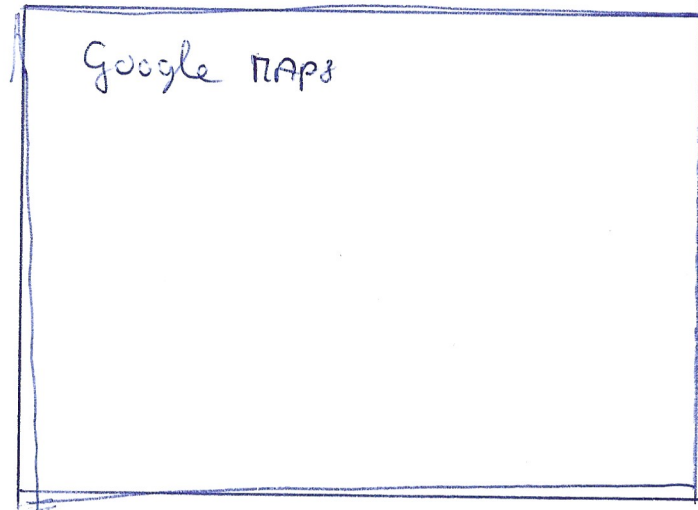 Google MAPS